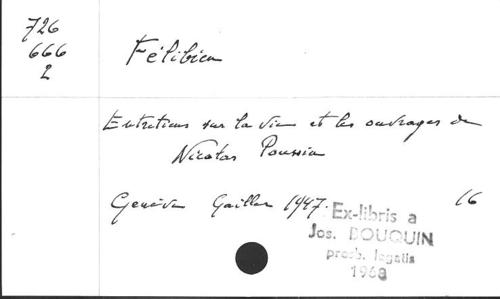 726
666
2
Félibien
Entretiens sur la vie et les ouvrages de
Nicolas Poussin
Genève Gailler 1947. 16
Ex-libris a
Jos. DOUQUIN
presb. legatis
1968